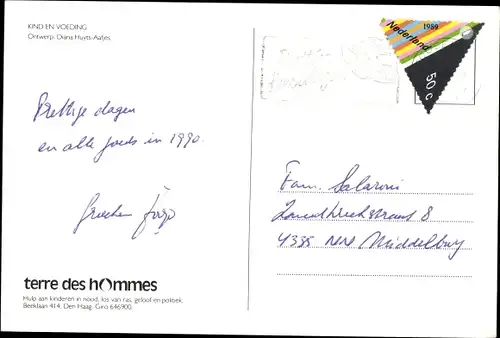 KIND EN VOEDING
Ontwerp: Diana Huyts-Aafjes
1989
Nederland
50 c
Prettige dagen
en alle goeds in 1990.
Fam. Salarini
8
4335 Middelburg
terre des hommes
Hulp aan kinderen in nood, los van ras, geloof en politiek.
Beeklaan 414, Den Haag, Giro 646900.